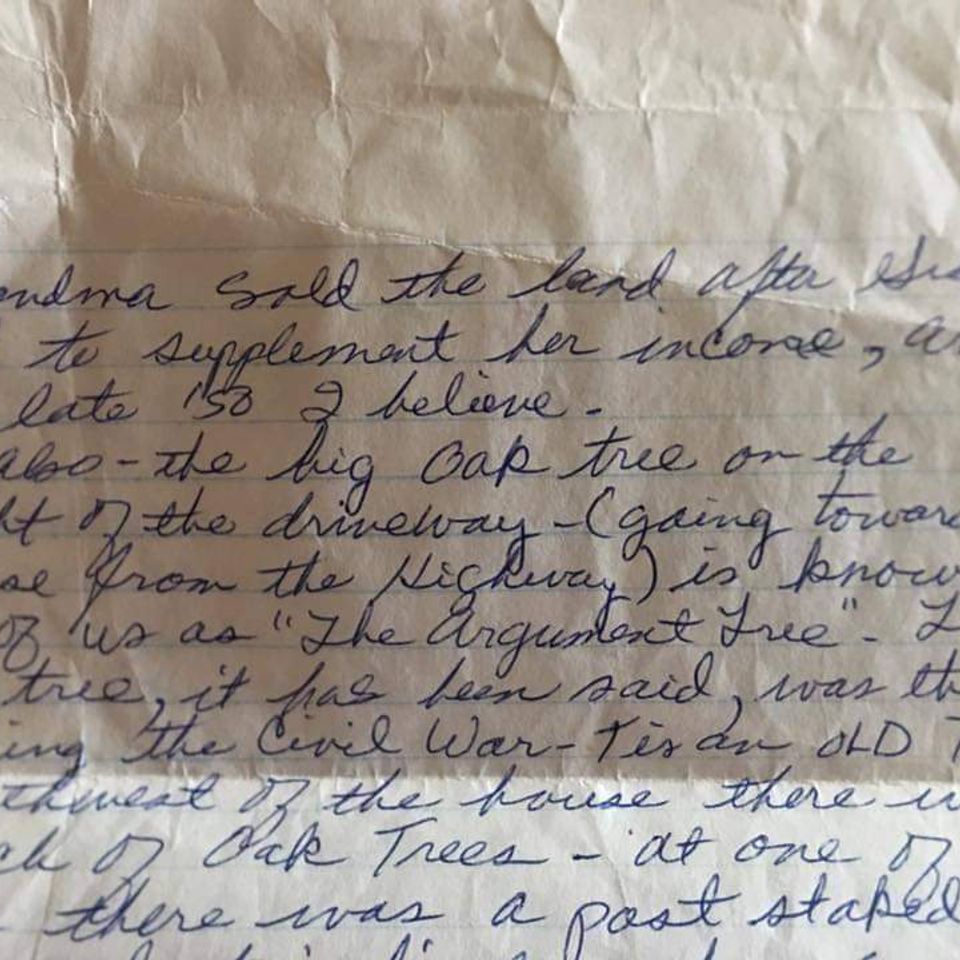 andma sold the land after
to supplement her income,
late '50 I believe.
also - the big Oak tree on the
ht of the driveway - (going toward
se from the Highway) is know
of us as "The Argument Tree" -
tree, it has been said, was th
ing the Civil War - Tis an OLD T
thwest of the house there w
ch of Oak Trees - at one of
there was a post staked